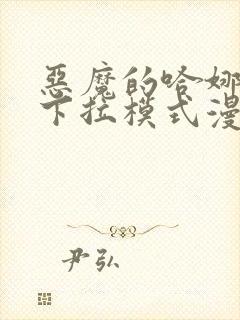 惡魔的哈娜
下拉模式漫
尹弘